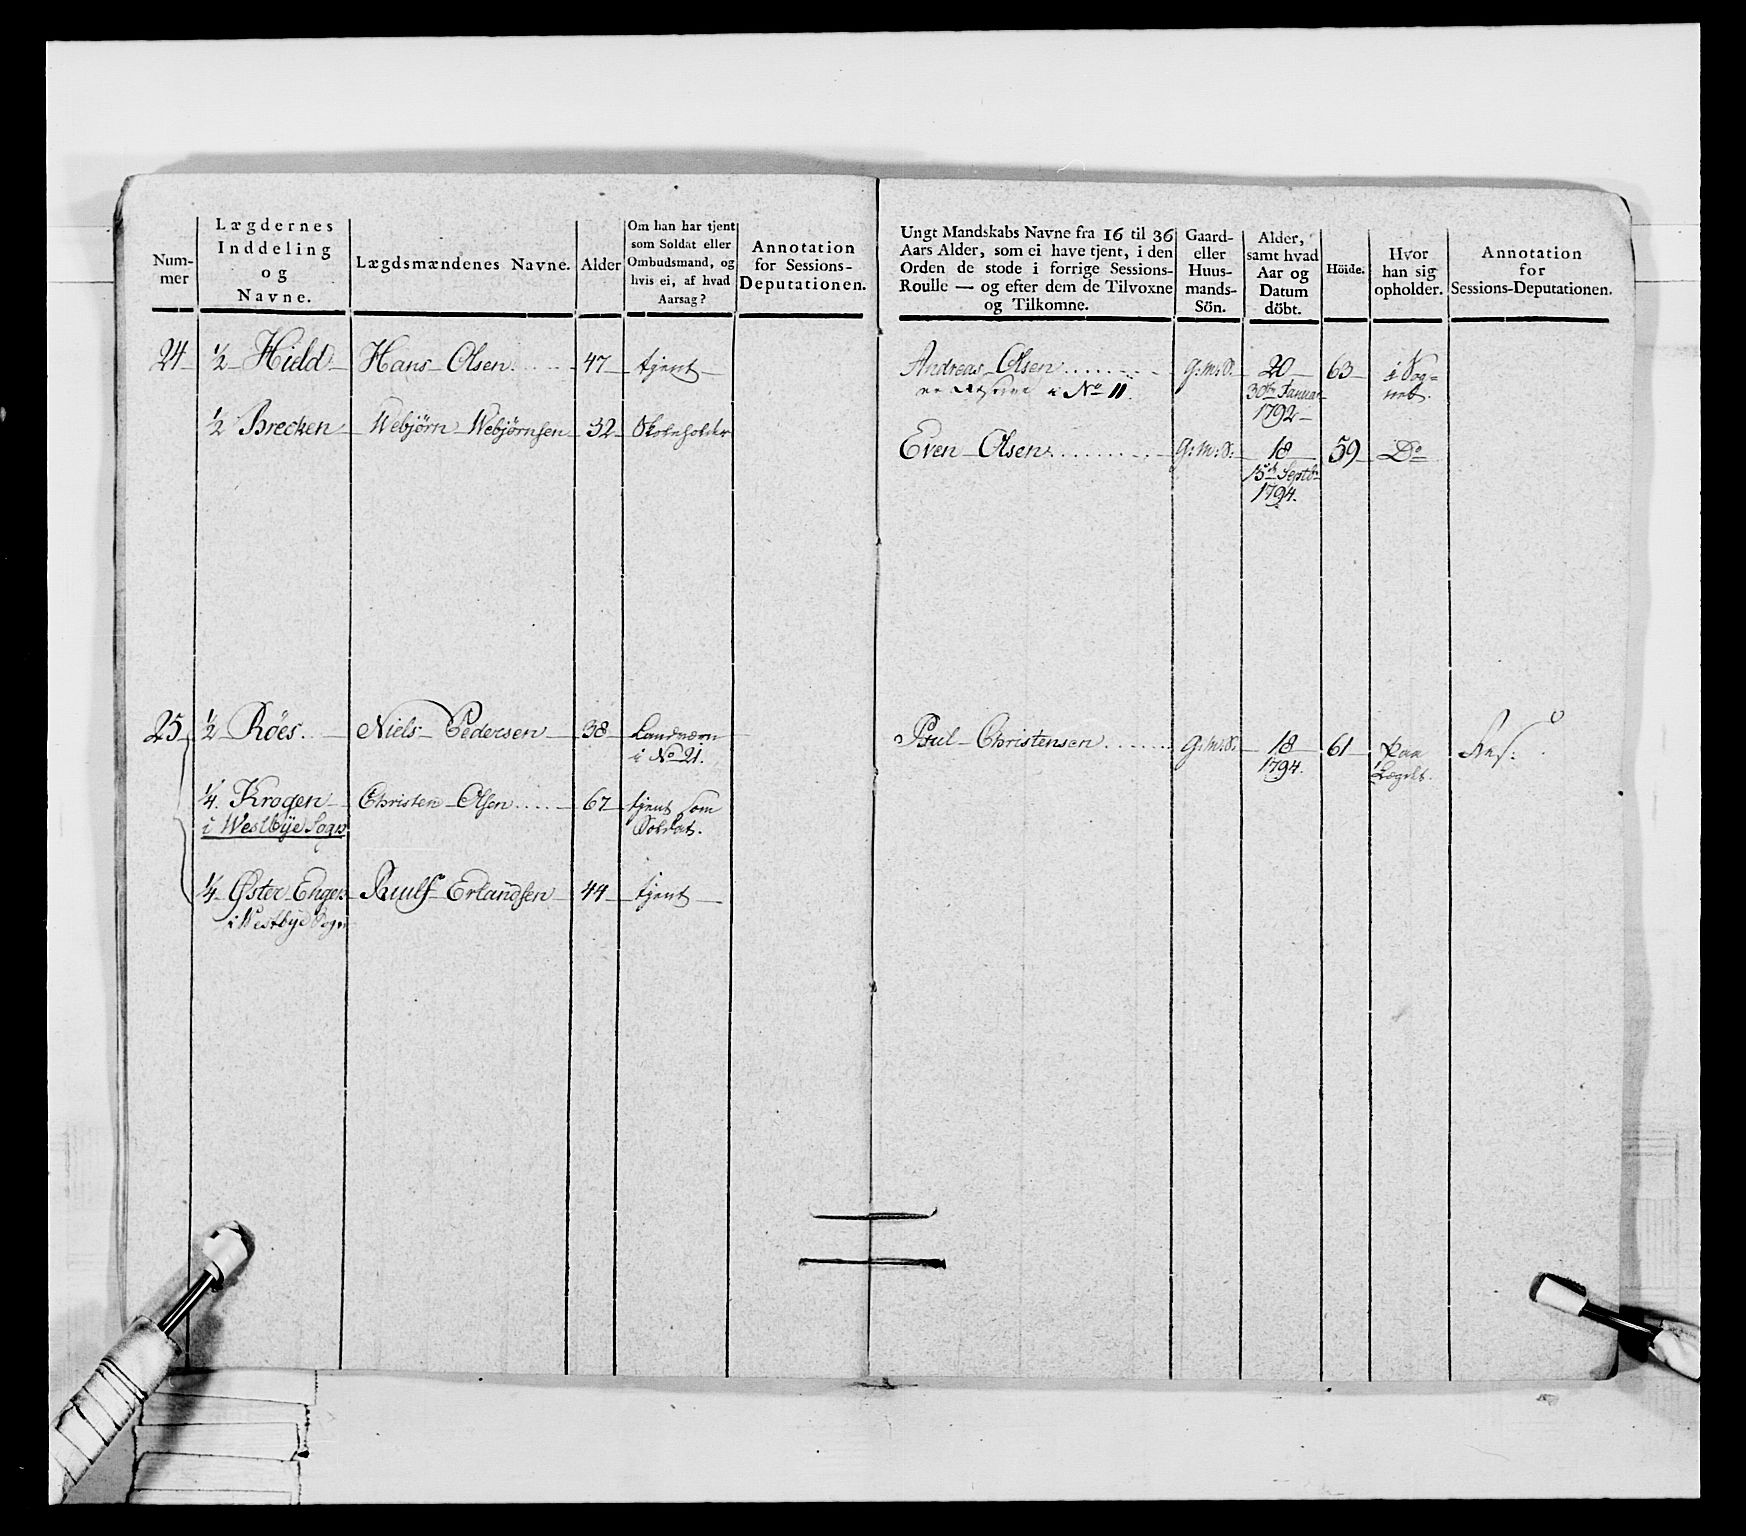 Num-
mer
Lægdernes
Inddeling
og
Navne.
Lægdsmændenes Navne.
Alder
Om han har tjent
som Soldat eller
Ombudsmand, og
hvis ei, af hvad
Aarsag?
Annotation
for Sessions-
Deputationen.
24 ½ Hidd Hans Olsen 47 tjent
½ Brecken Webjørn Webjørnsen 32 Skoleholder
25 ½ Röes Niels Pedersen 38 Landværn
i No 21.
¼ Krogen Christen Olsen 67 tjent som
i Westbye Sogn Soldat.
¼ Øster Engen Erlandsen 44 tjent
i Westbye Sogn
Ungt Mandskabs Navne fra 16 til 36
Aars Alder, som ei have tjent, i den
Orden de stode i forrige Sessions-
Roulle — og efter dem de Tilvoxne
og Tilkomne.
Gaard-
eller
Huus-
mands-
Sön.
Alder,
samt hvad
Aar og
Datum
döbt.
Höide.
Hvor
han sig
opholder.
Annotation
for
Sessions-Deputationen.
Andreas Olsen G:M:S. 20 63 i Sog-
i No 11. 30te Januar net.
1792
Even Olsen G:M:S. 18 59 Do
15de Septbr
1794.
Poul Christensen G:M:S. 18 61 paa
1794. Lægdet.